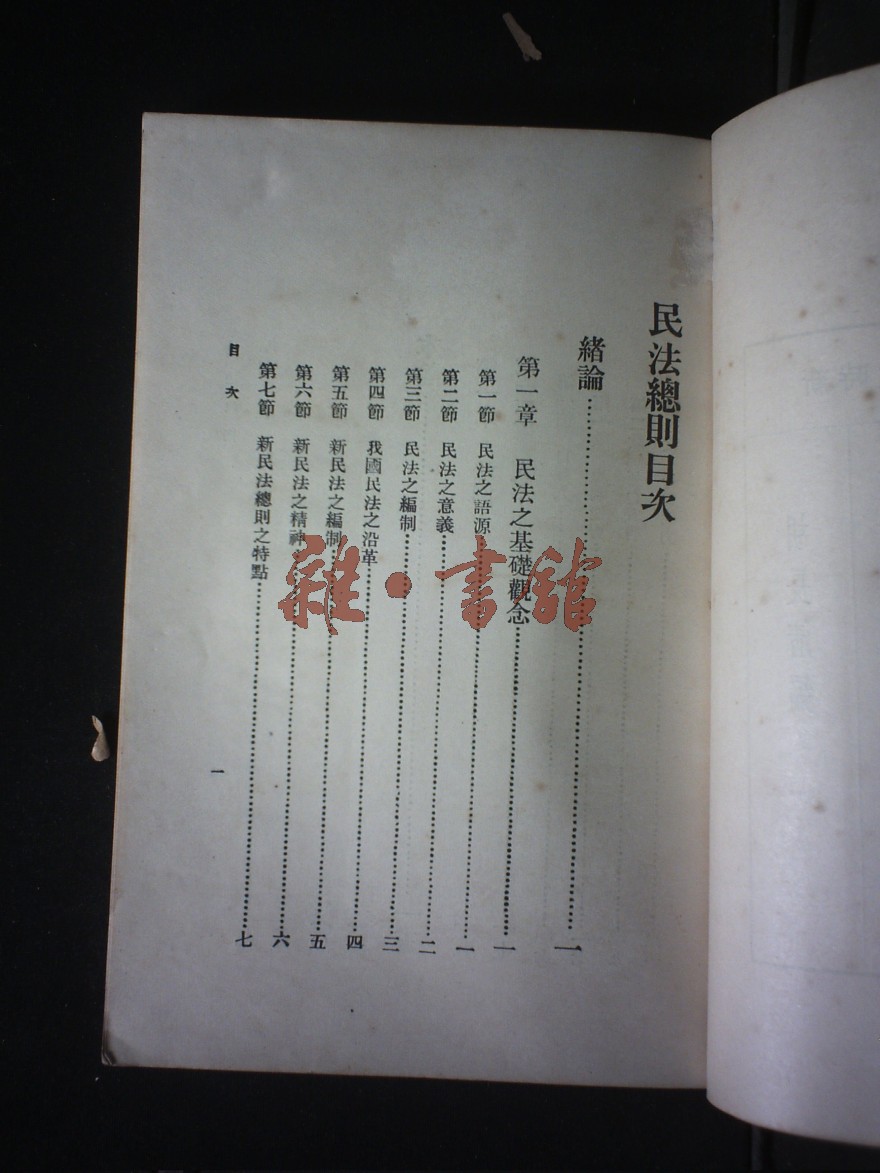 民法總則目次
緒論……一
第一章 民法之基礎觀念……一
第一節 民法之語源……一
第二節 民法之意義……二
第三節 民法之編制……三
第四節 我國民法之沿革……四
第五節 新民法之編制……五
第六節 新民法之精神……六
第七節 新民法總則之特點……七
目次
一
雜·書館